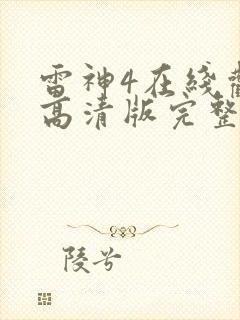 雷神4在线
高清版完整
陵兮